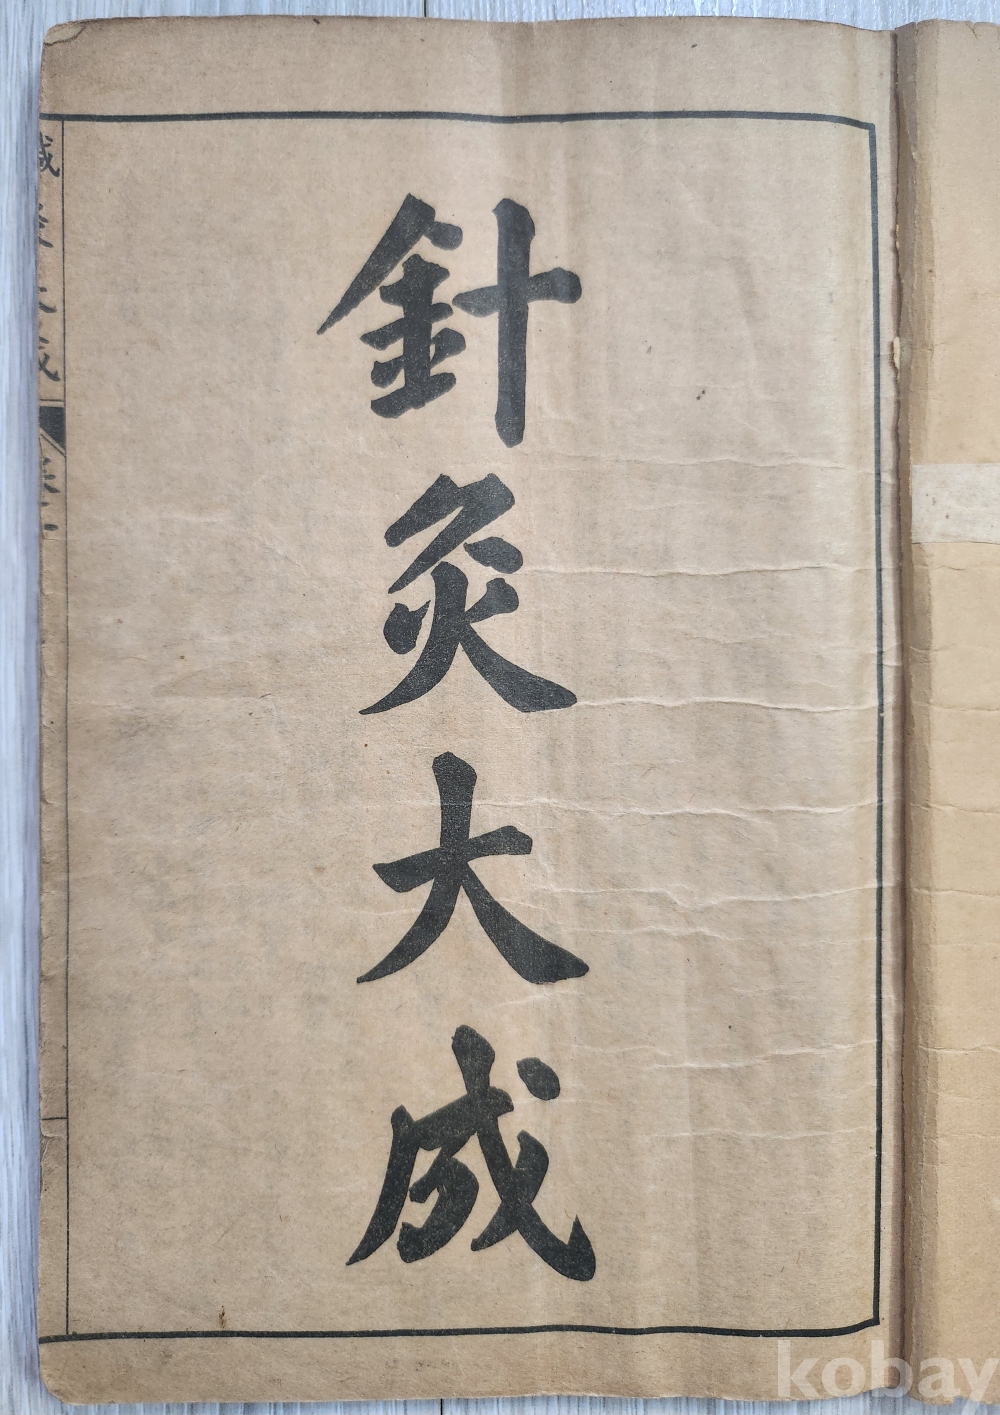 針灸大成
kobay